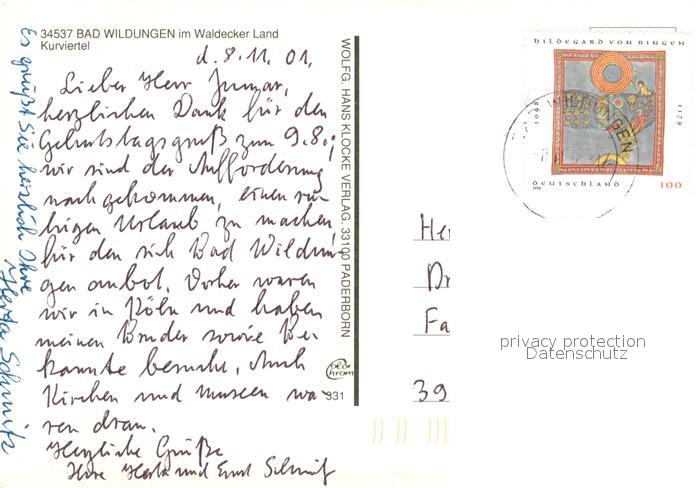 34537 BAD WILDUNGEN im Waldecker Land
Kurviertel
d. 8.11.01.
Lieber Herr
herzlichen Dank für den
Geburtstagsgruß zum 9.8.;
wir sind der Aufforderung
nachgekommen, einen ru-
higen Urlaub zu machen,
für den sich Bad Wildun-
gen anbot. Vorher waren
wir in Köln und haben
meinen Bruder sowie Be-
kannte besucht. Auch
Kirchen und Museen wa-
ren dran.
Herzliche Grüße
Ihre Herta und Ernst Schmitz
Es grüßt Sie herzlich Ihre
Herta Schmitz
WOLFG. HANS KLOCKE VERLAG, 33100 PADERBORN
color
chrom
331
HILDEGARD VON BINGEN
1098
1179
DEUTSCHLAND
100
WILDUNGEN
He
Dr
Fa
39
privacy protection
Datenschutz